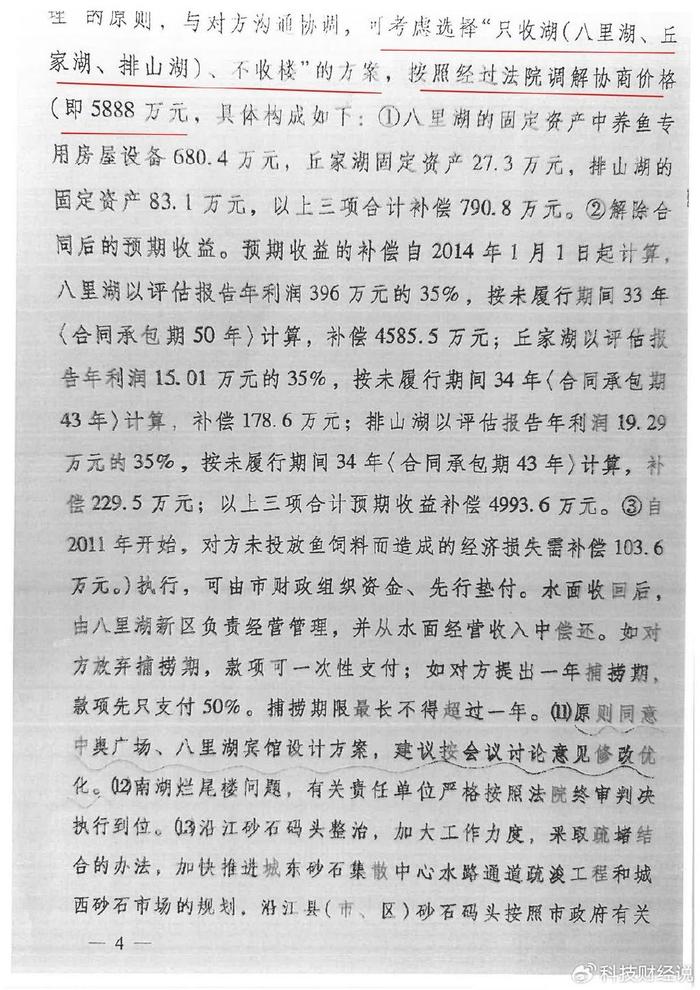 理”的原则，与对方沟通协调，可考虑选择“只收湖(八里湖、丘
家湖、排山湖)、不收楼”的方案，按照经过法院调解协商价格
(即5888万元，具体构成如下：①八里湖的固定资产中养鱼专
用房屋设备680.4万元，丘家湖固定资产27.3万元，排山湖的
固定资产83.1万元，以上三项合计补偿790.8万元。②解除合
同后的预期收益。预期收益的补偿自2014年1月1日起计算，
八里湖以评估报告年利润396万元的35%，按未履行期间33年
〈合同承包期50年〉计算，补偿4585.5万元；丘家湖以评估报
告年利润15.01万元的35%，按未履行期间34年〈合同承包期
43年〉计算，补偿178.6万元；排山湖以评估报告年利润19.29
万元的35%，按未履行期间34年〈合同承包期43年〉计算，补
偿229.5万元；以上三项合计预期收益补偿4993.6万元。③自
2011年开始，对方未投放鱼饲料而造成的经济损失需补偿103.6
万元。)执行，可由市财政组织资金、先行垫付。水面收回后，
由八里湖新区负责经营管理，并从水面经营收入中偿还。如对
方放弃捕捞期，款项可一次性支付；如对方提出一年捕捞期，
款项先只支付50%。捕捞期限最长不得超过一年。⑾原则同意
中奥广场、八里湖宾馆设计方案，建议按会议讨论意见修改优
化。⑿南湖烂尾楼问题，有关责任单位严格按照法院终审判决
执行到位。⒀沿江砂石码头整治，加大工作力度，采取疏堵结
合的办法，加快推进城东砂石集散中心水路通道疏浚工程和城
西砂石市场的规划，沿江县(市、区)砂石码头按照市政府有关
— 4 —
科技财经说